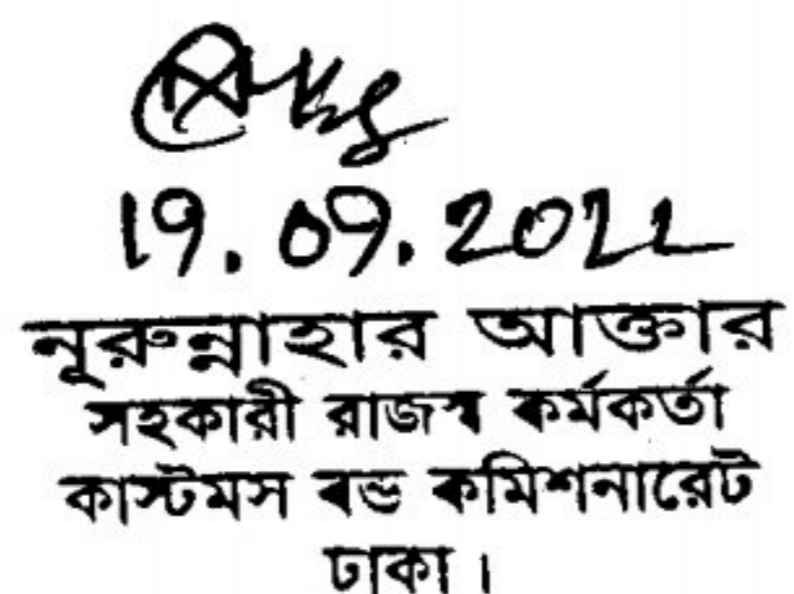 19.09.2022
নূরুন্নাহার আক্তার
সহকারী রাজস্ব কর্মকর্তা
কাস্টমস বন্ড কমিশনারেট
ঢাকা।